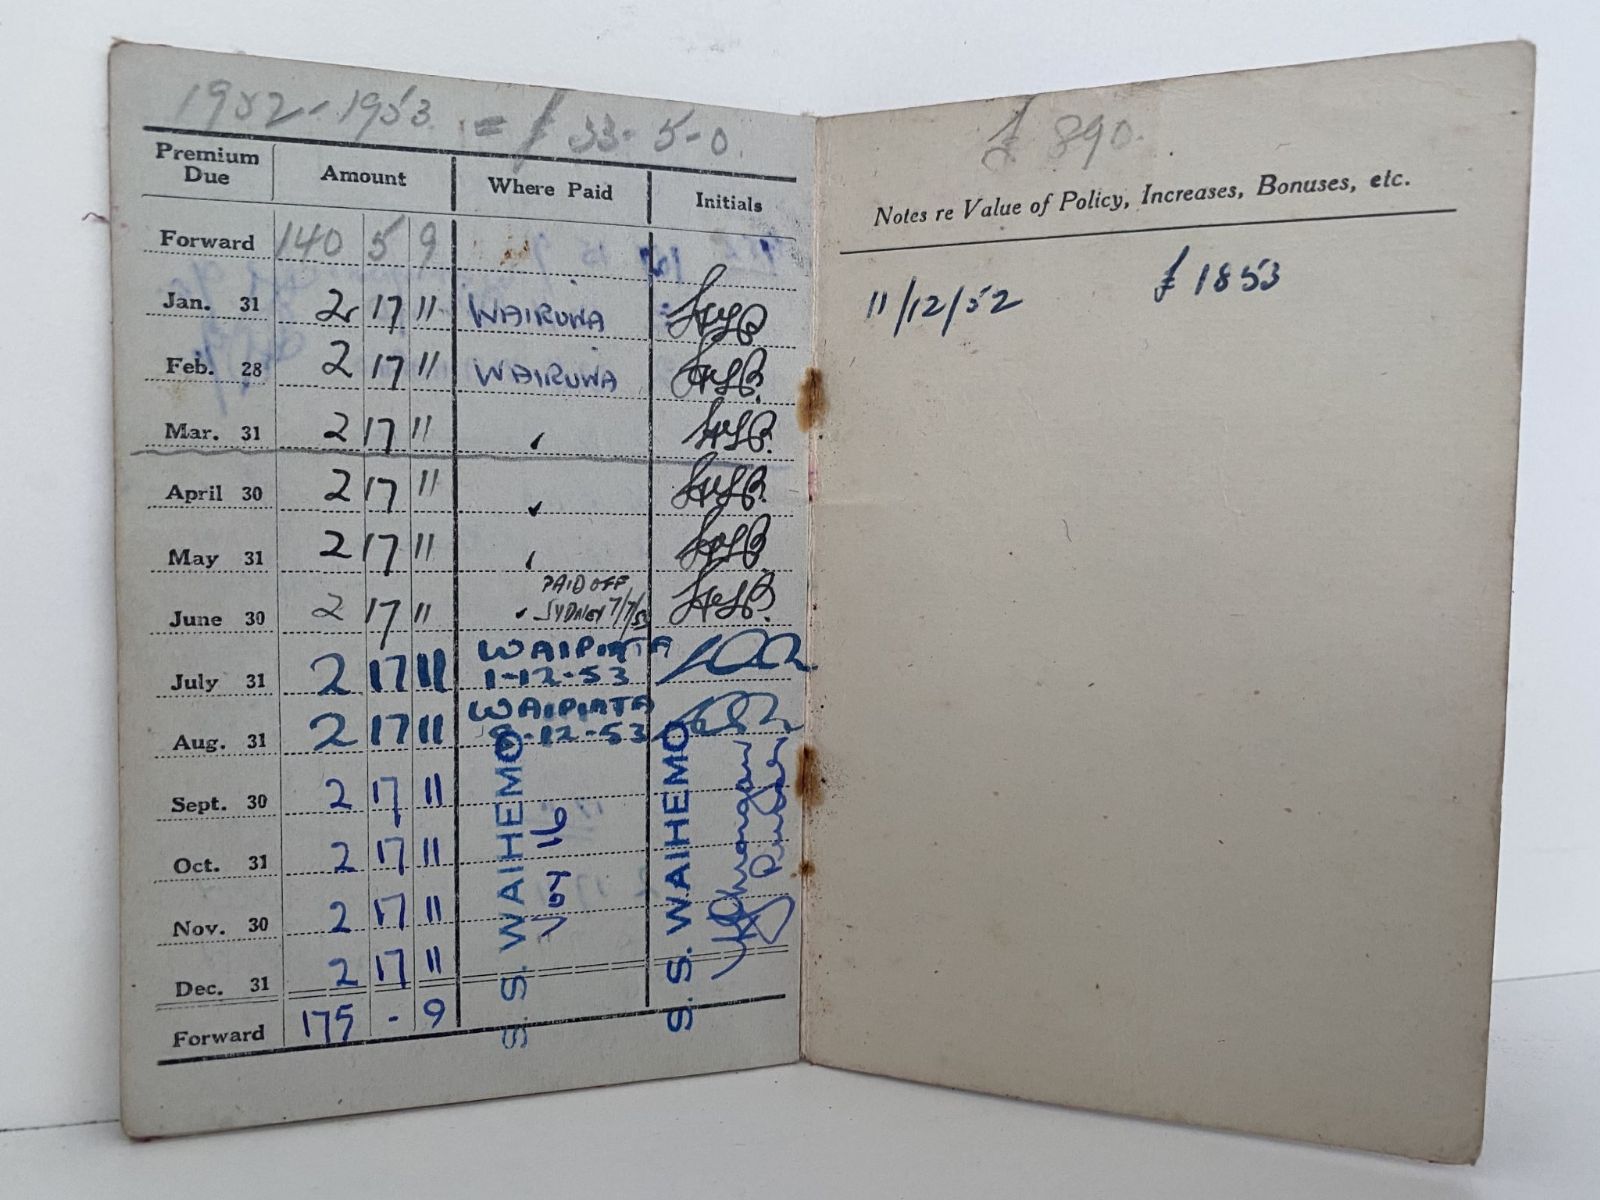 1952-1953 = £ 33-5-0.
Premium Due Amount Where Paid Initials
Forward 140 5 9
Jan. 31 2 17 11 WAIRUNA
Feb. 28 2 17 11 WAIRUNA
Mar. 31 2 17 11
April 30 2 17 11
May 31 2 17 11
June 30 2 17 11 PAID OFF SYDNEY 7/7/53
July 31 2 17 11 WAIPIATA 1-12-53
Aug. 31 2 17 11 WAIPIATA 8-12-53
Sept. 30 2 17 11
Oct. 31 2 17 11
Nov. 30 2 17 11
Dec. 31 2 17 11
Forward 175 - 9
S.S. WAIHEMO
S.S. WAIHEMO
£ 890.
Notes re Value of Policy, Increases, Bonuses, etc.
11/12/52 £ 1853